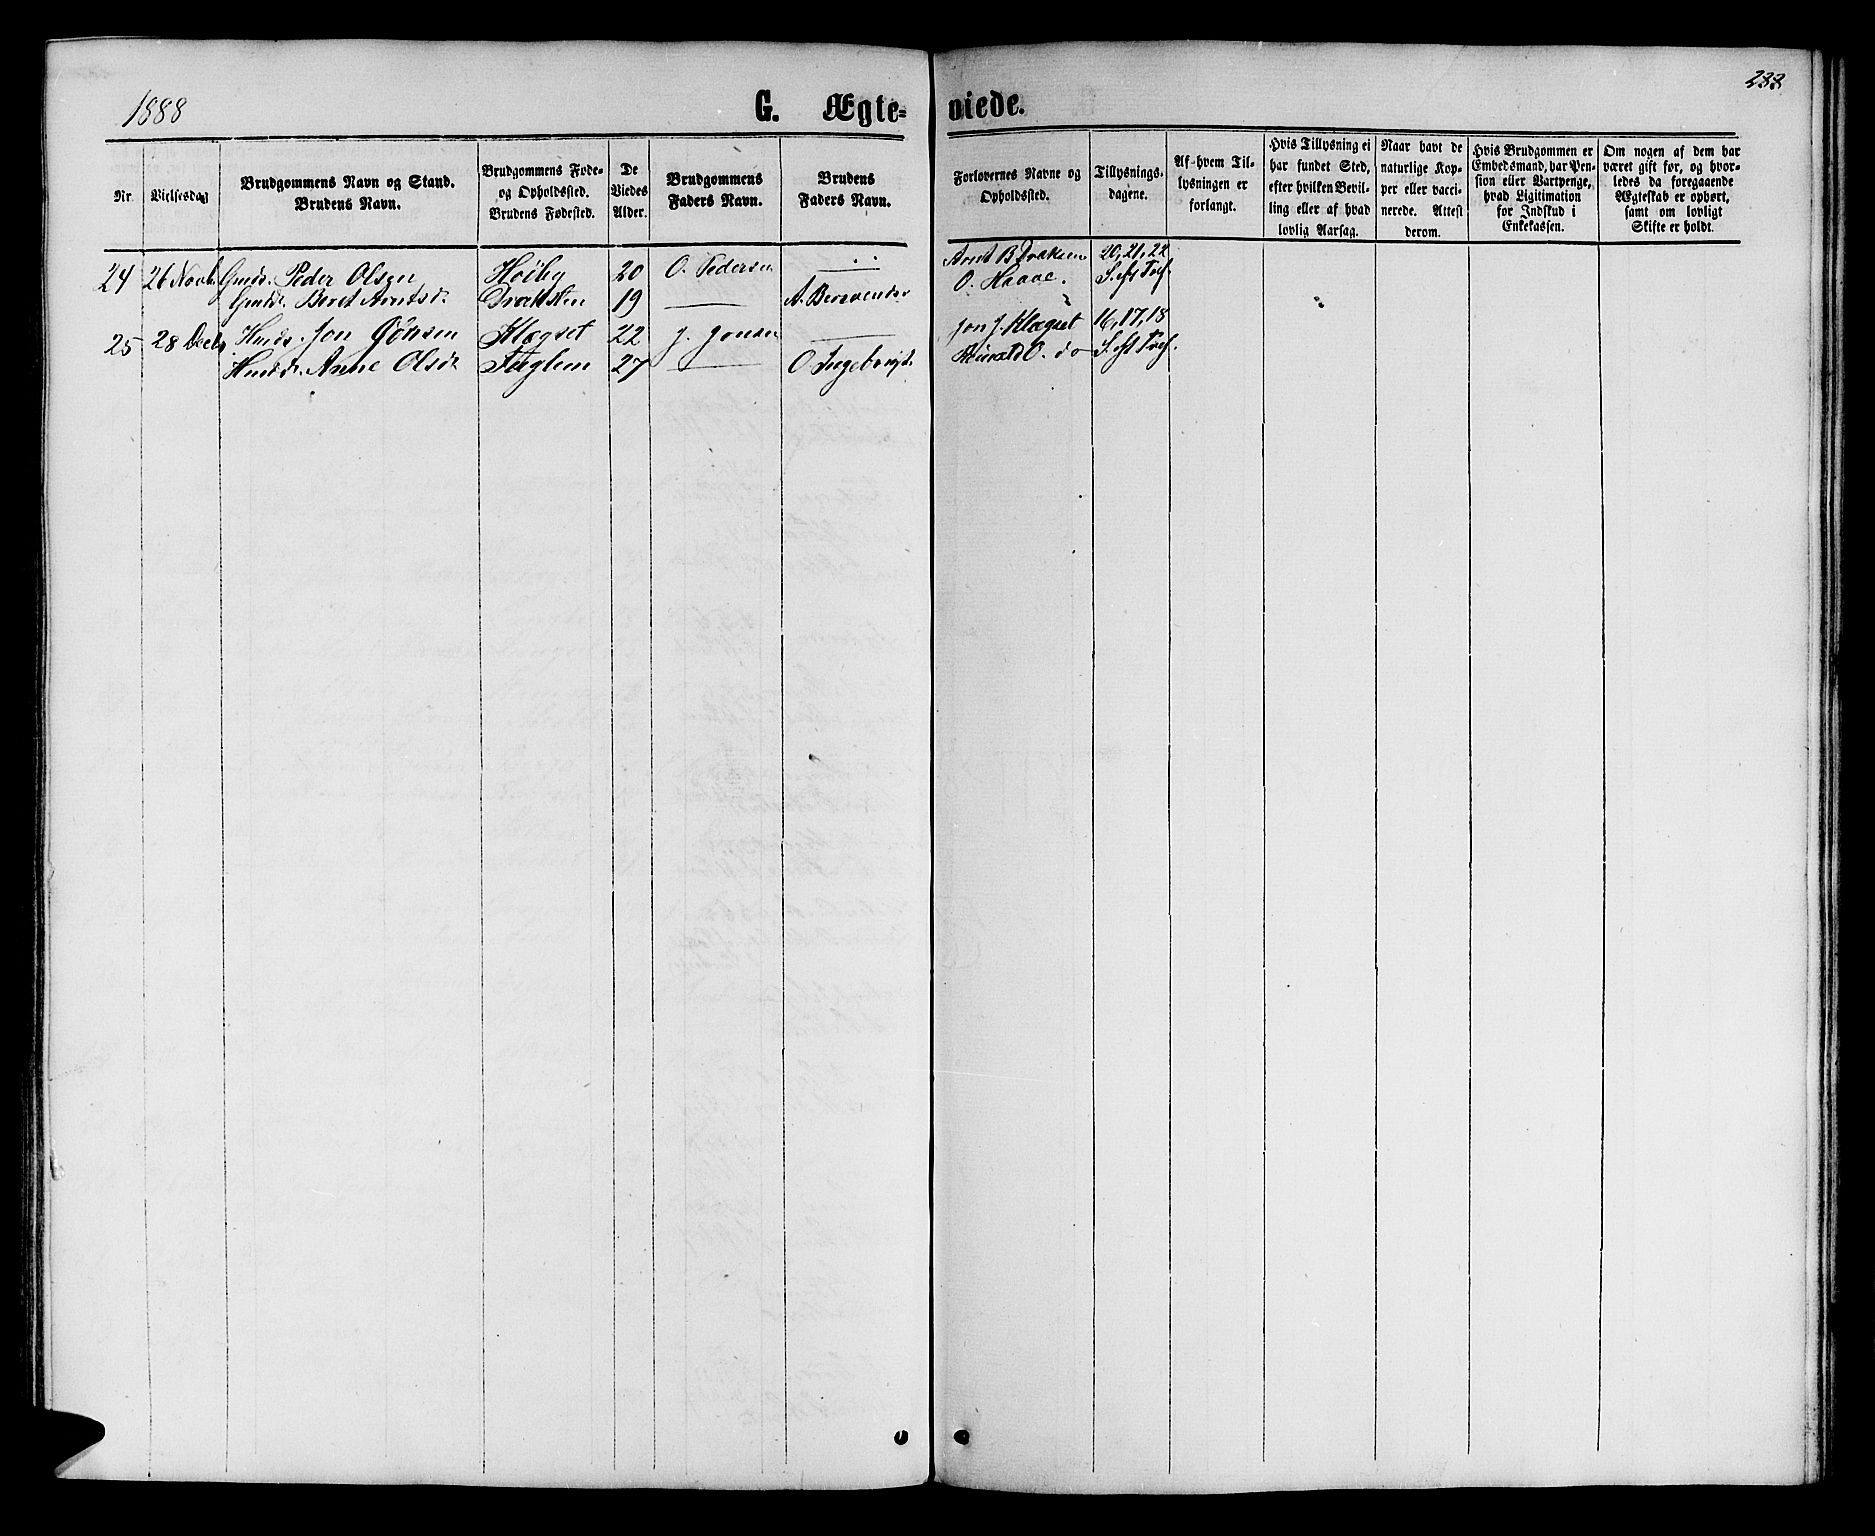 1888
G. Ægte=
viede.
233
Nr.
Vielsesdag
Brudgommens Navn og Stand.
Brudens Navn.
Brudgommens Føde-
og Opholdssted.
Brudens Fødested.
De
Viedes
Alder.
Brudgommens
Faders Navn.
Brudens
Faders Navn.
Forlovernes Navne og
Opholdssted.
Tillysnings-
dagene.
Af hvem Til-
lysningen er
forlangt.
Hvis Tillysning ei
har fundet Sted,
efter hvilken Bevil-
ling eller af hvad
lovlig Aarsag.
Naar havt de
naturlige Kop-
per eller vacci-
nerede. Attest
derom.
Hvis Brudgommen er
Embedsmand, har Pen-
sion eller Vartpenge,
hvad Ligitimation
for Indskud i
Enkekassen.
Om nogen af dem har
været gift før, og hvor-
ledes da foregaaende
Ægteskab er ophørt,
samt om lovligt
Skifte er holdt.
24 26 Novb. Gmds. Peder Olsen Høiby 20 O. Pedersen
Gmdd. Beret Arntsd. Draksten 19 A.
Arnt B Draksten 20, 21, 22
O. Haave. S. eft Tref.
25 28 Decb. Hmds. Jon Jonsen Klegset 22 J. Jonsen
Hmdd. Anne Olsd. Fuglem 27 O. Ingebrigts.
Jon J. Klegset 16, 17, 18
O. do S. eft Tref.